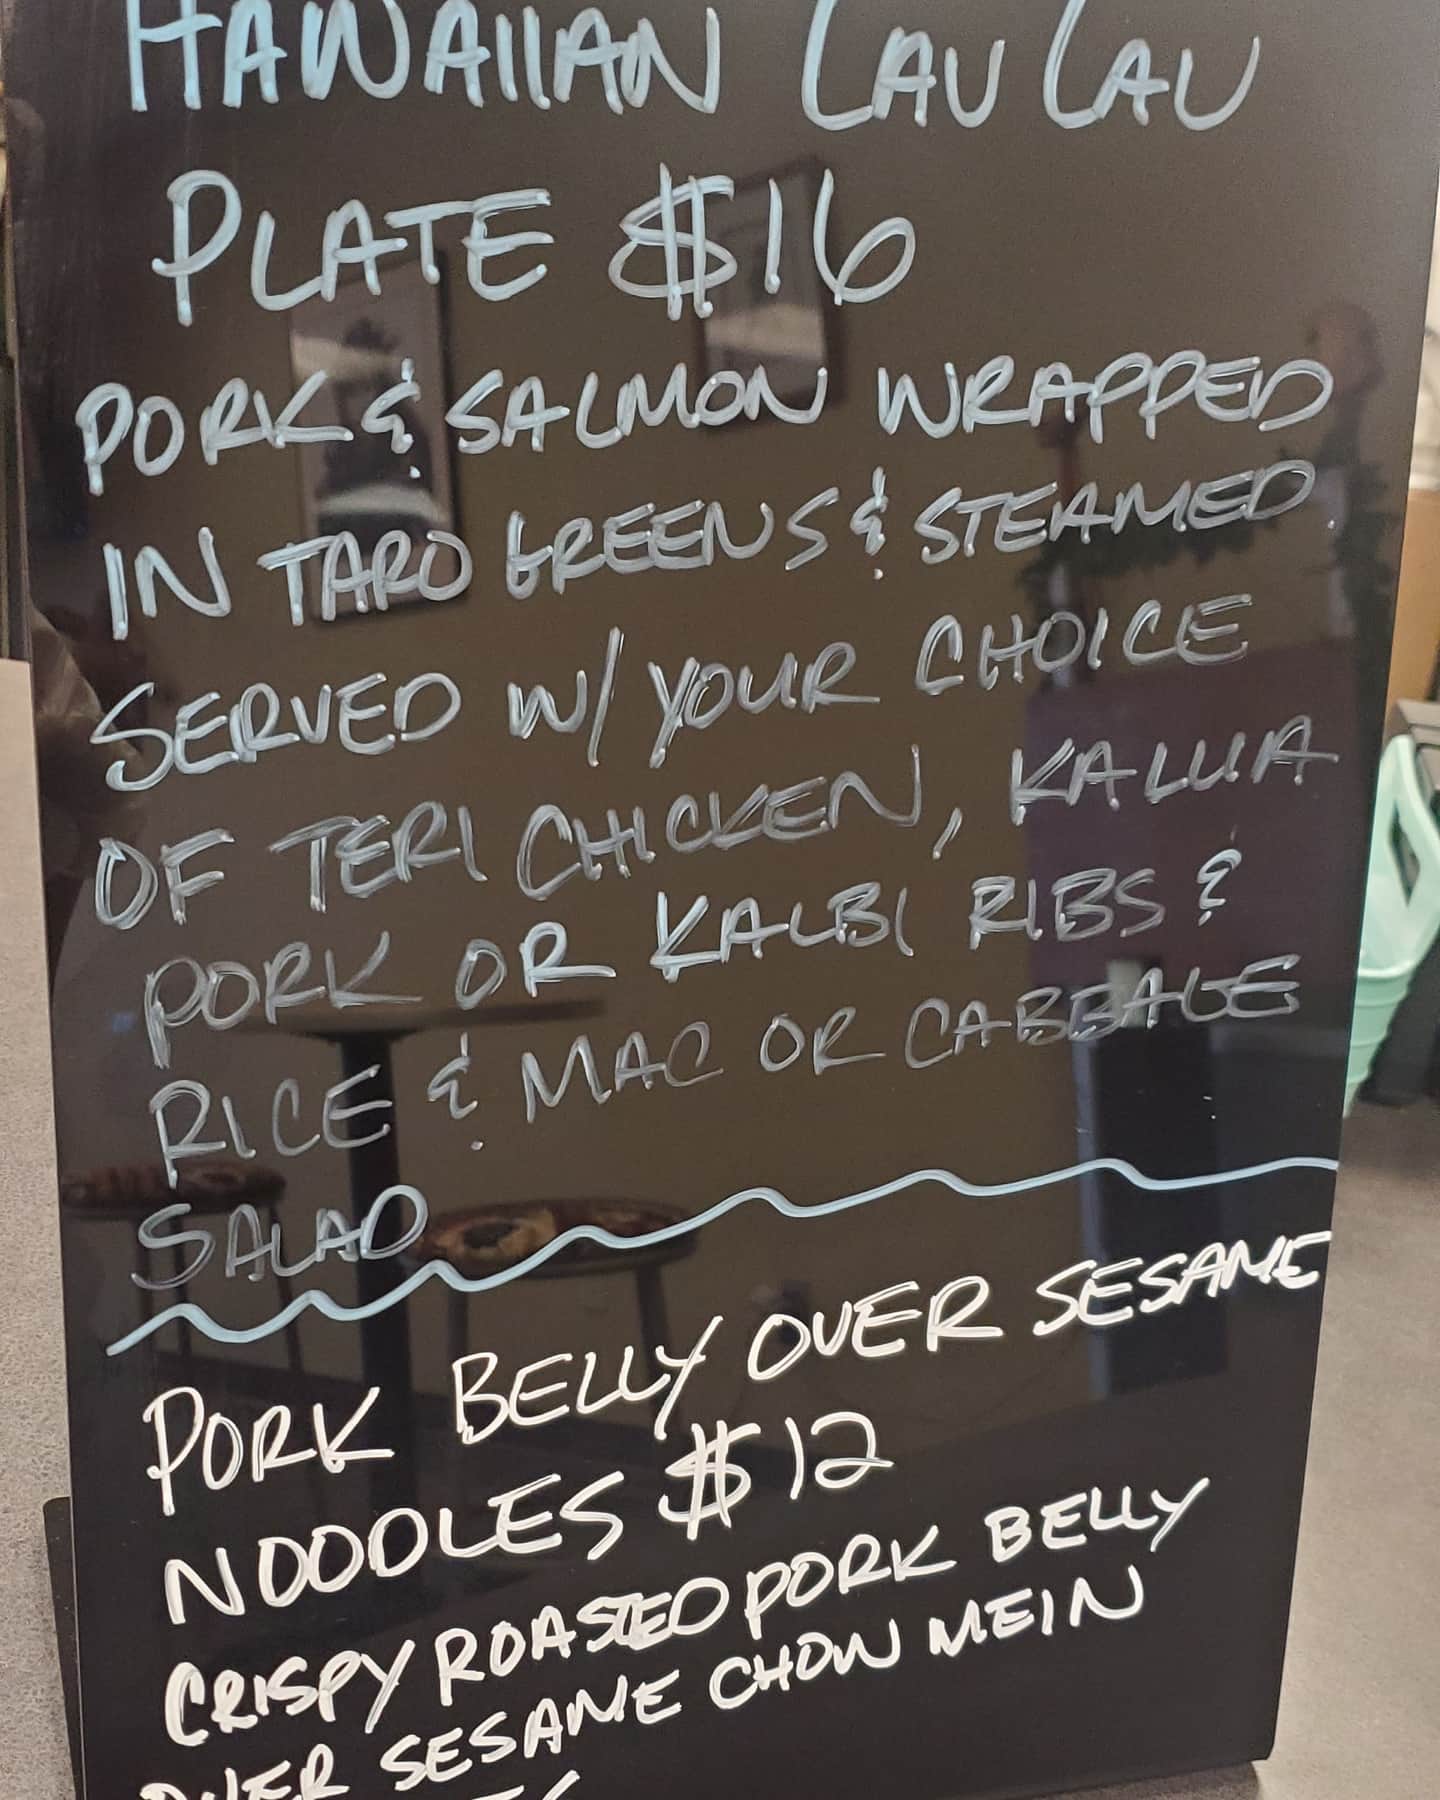 HAWAIIAN LAU LAU
PLATE $16
PORK & SALMON WRAPPED
IN TARO GREENS & STEAMED
SERVED W/ YOUR CHOICE
OF TERI CHICKEN, KALUA
PORK OR KALBI RIBS &
RICE & MAC OR CABBAGE
SALAD
PORK BELLY OVER SESAME
NOODLES $12
CRISPY ROASTED PORK BELLY
OVER SESAME CHOW MEIN